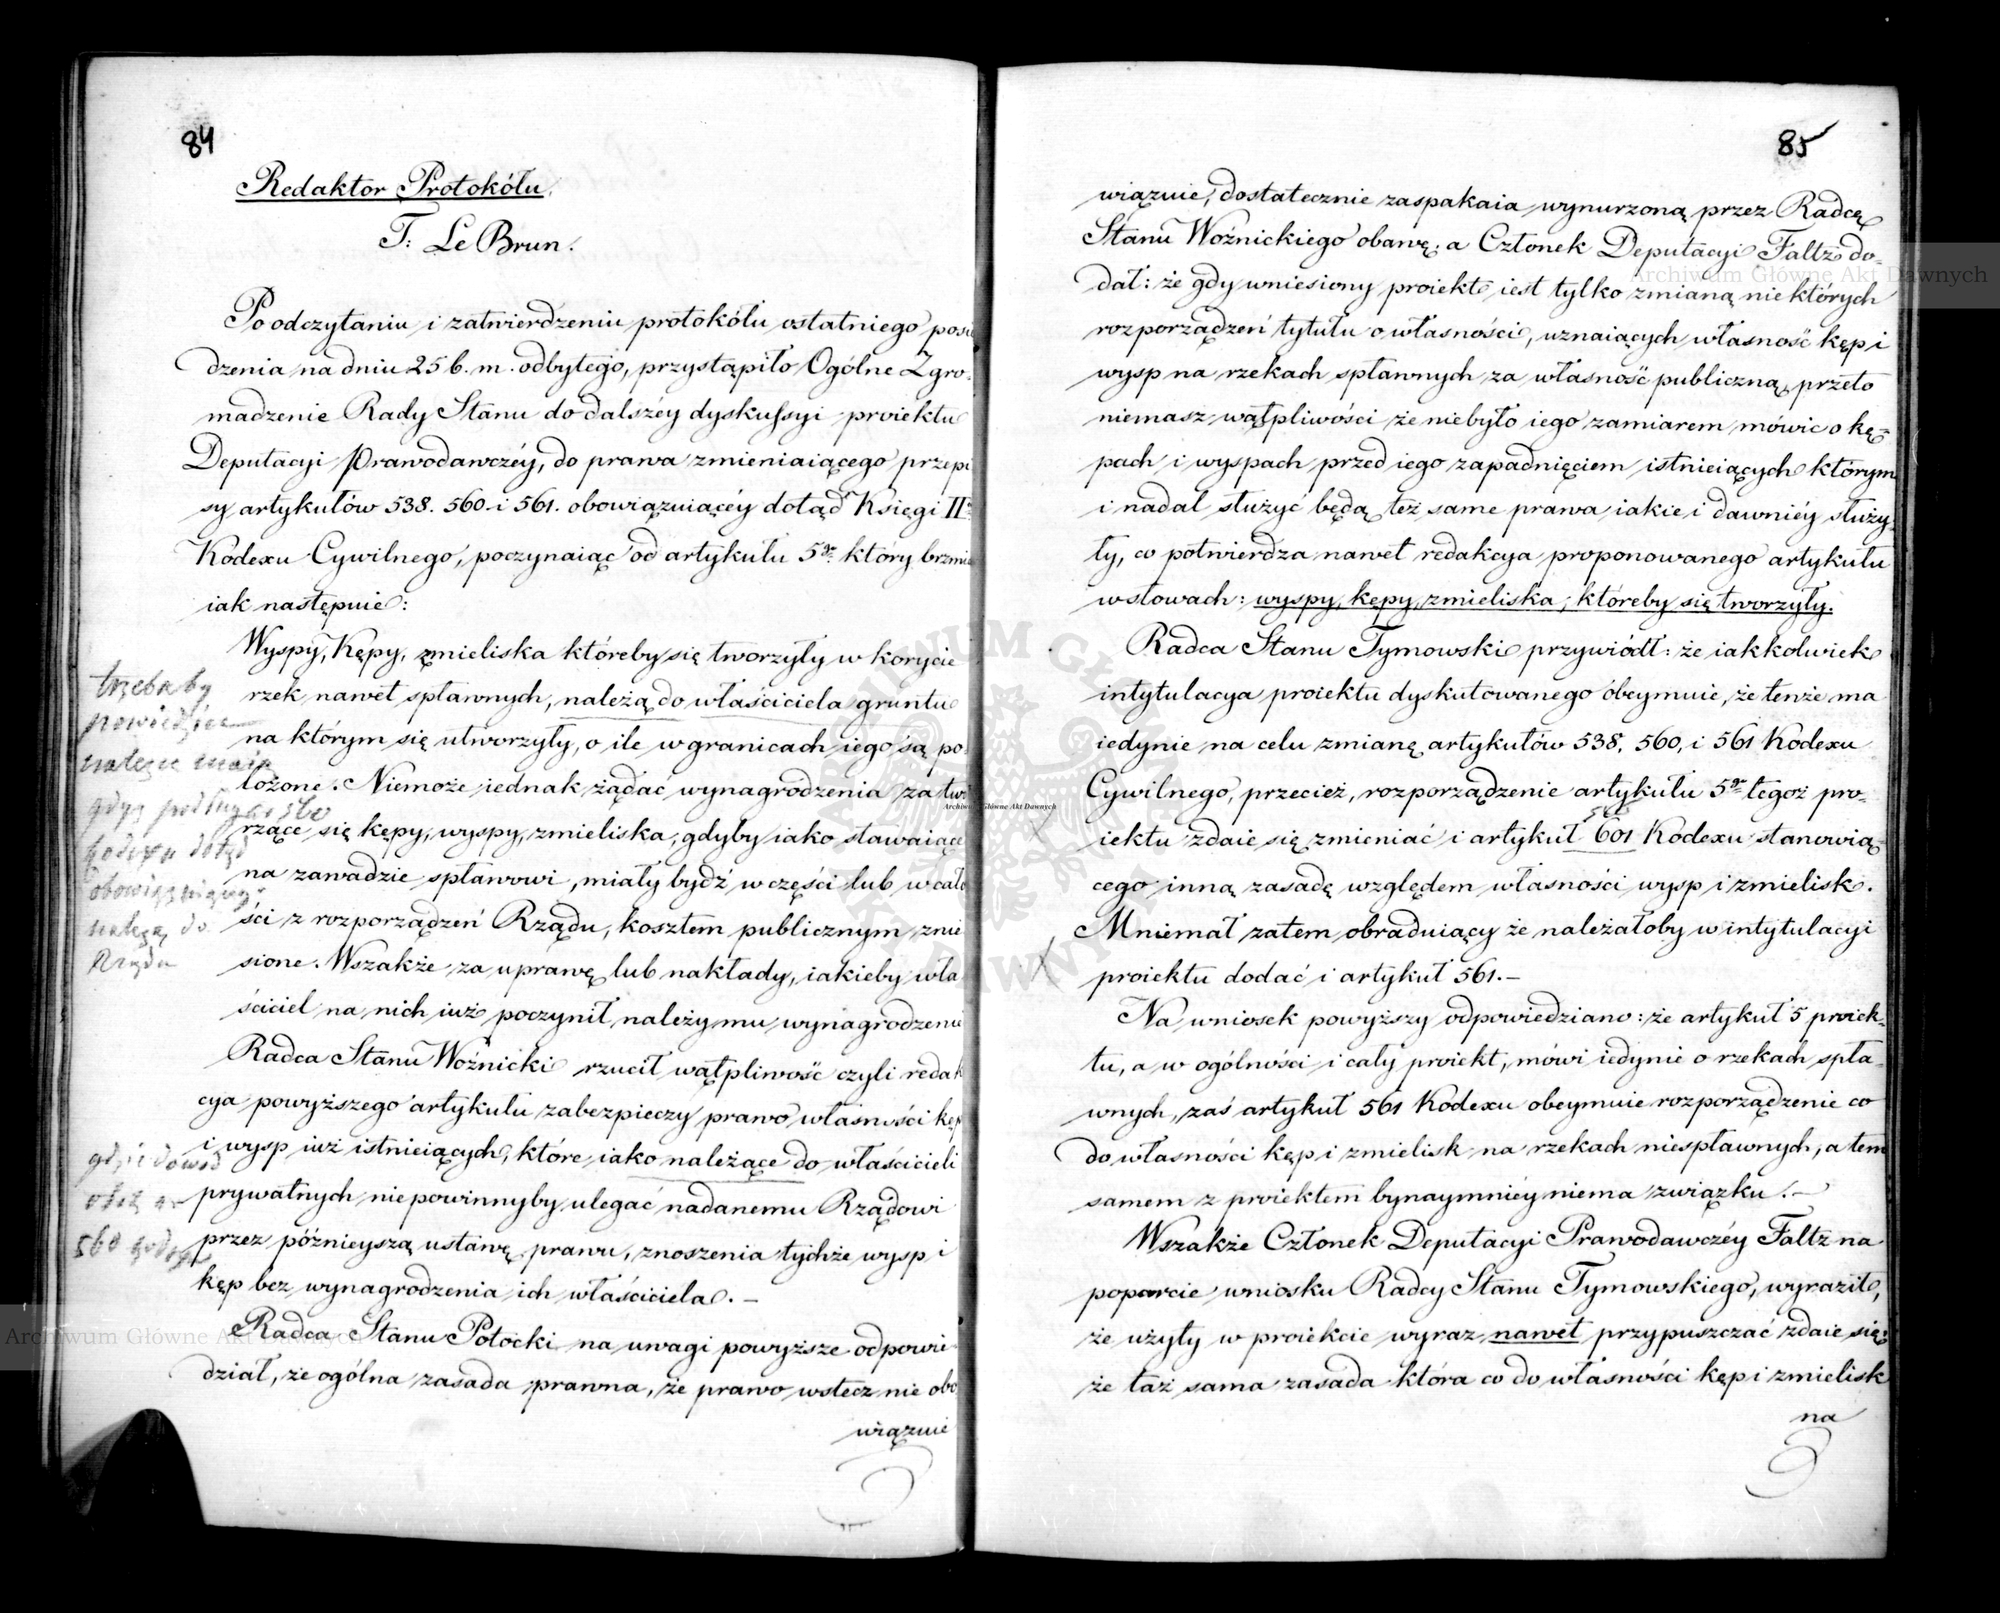 84
Redaktor Protokółu.
T: Le Brun.
Po odczytaniu i zatwierdzeniu protokółu ostatniego posie
dzenia na dniu 25 b. m. odbytego, przystąpiło Ogólne Zgro-
madzenie Rady Stanu do dalszéy dyskussyi proiektu
Deputacyi Prawodawczéy, do prawa zmieniaiącego przepi
sy artykułów 538. 560. i 561. obowiązuiącéy dotąd Księgi IIéy
Kodexu Cywilnego, poczynaiąc od artykułu 5go który brzmi
iak następuie:
Wyspy, Kępy, zmieliska któreby się tworzyły w korycie
rzek nawet spławnych, należą do właściciela gruntu
na którym się utworzyły, o ile w granicach iego są po
łożone. Niemoże iednak żądać wynagrodzenia za two
rzące się kępy, wyspy, zmieliska, gdyby iako stawaiące
na zawadzie spławowi, miały bydź w części lub w cało
ści z rozporządzeń Rządu, kosztem publicznym znie
sione. Wszakże za uprawę lub nakłady, iakieby wła
ściciel na nich iuż poczynił, należy mu wynagrodzenie
Radca Stanu Woźnicki rzucił wątpliwość czyli redak
cya powyższego artykułu zabezpieczy prawo własności kęp
i wysp iuż istnieiących, które iako należące do właścicieli
prywatnych nie powinnyby ulegać nadanemu Rządowi
przez późnieyszą ustawę prawu, znoszenia tychże wysp i
kęp bez wynagrodzenia ich właściciela. –
Radca Stanu Potocki na uwagi powyższe odpowie
dział, że ogólna zasada prawna, że prawo wstecz nie obo
wiązuie
trzeba by
powiedzieć
należeć maią
gdyż podług art 560
kodexu dotąd
obowiązuiącego
należą do
Rządu
560
85
wiązuie, dostatecznie zaspakaia wynurzoną przez Radcę
Stanu Woźnickiego obawę; a Członek Deputacyi Faltz do-
dał: że gdy wniesiony proiekt iest tylko zmianą niektórych
rozporządzeń tytułu o własności, uznaiących własność kęp i
wysp na rzekach spławnych za własność publiczną, przeto
niemasz wątpliwości że niebyło iego zamiarem mówić o kę-
pach i wyspach przed iego zapadnięciem istnieiących którym
i nadal służyć będą też same prawa iakie i dawniéy służy
ły, co potwierdza nawet redakcya proponowanego artykułu
w słowach: wyspy, kępy, zmieliska, któreby się tworzyły.
Radca Stanu Tymowski przywiódł: że iakkolwiek
intytulacya proiektu dyskutowanego obeymuie, że tenże ma
iedynie na celu zmianę artykułów 538, 560, i 561 Kodexu
Cywilnego, przecież, rozporządzenie artykułu 5go tegoż pro-
iektu zdaie się zmieniać i artykuł 601 Kodexu stanowią-
cego inną zasadę względem własności wysp i zmielisk.
Mniemał zatem obraduiący że należałoby w intytulacyi
proiektu dodać i artykuł 561. –
Na wniosek powyższy odpowiedziano: że artykuł 5 proiek-
tu, a w ogólności i cały proiekt, mówi iedynie o rzekach spła-
wnych, zaś artykuł 561 Kodexu obeymuie rozporządzenie co
do własności kęp i zmielisk na rzekach niespławnych, a tem
samem z proiektem bynaymniéy niema związku. –
Wszakże Członek Deputacyi Prawodawczéy Faltz na
poparcie wniosku Radcy Stanu Tymowskiego, wyraził,
że użyty w proiekcie wyraz nawet przypuszczać zdaie się,
że taż sama zasada która co do własności kęp i zmielisk
na
Archiwum Główne Akt Dawnych
Archiwum Główne Akt Dawnych
Archiwum Główne Akt Dawnych